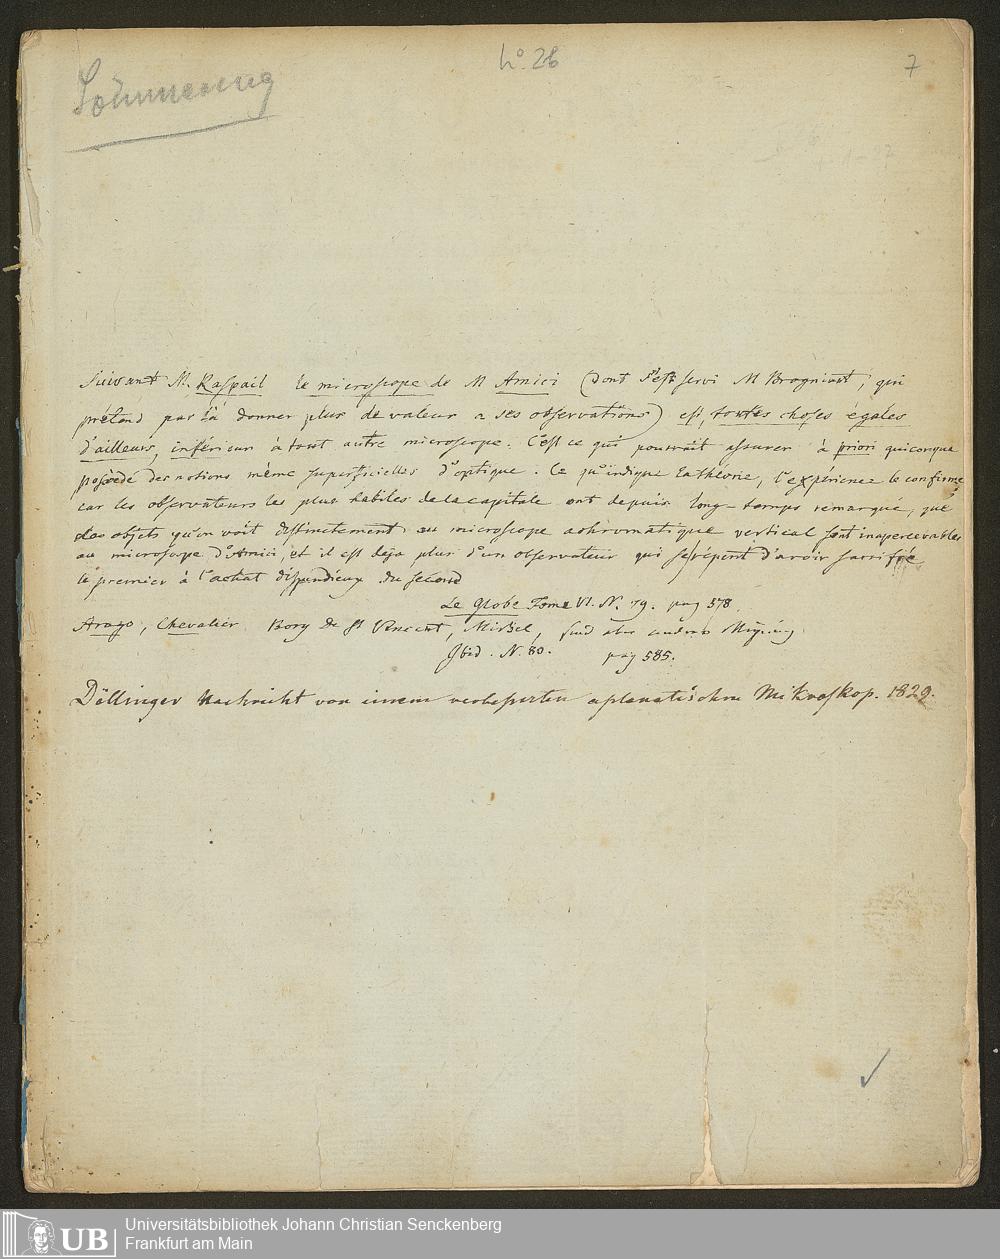 Sömmerring
No. 28
7
Suivant M. Raspail le microscope de M Amici (dont s'est servi M Brogniart, qui
prétend par là donner plus de valeur a ses observations) est, toutes choses égales
d'ailleurs, inférieur à tout autre microscope. C'est ce que pourroit assurer à priori quiconque
possède des notions même superficielles d'optique. Ce qu'indique la théorie, l'expérience le confirme
car les observateurs les plus habiles de la capitale ont depuis long-temps remarqué, que
des objets qu'on voit distinctement au microscope achromatique vertical sont inapercevables
au microscope d'Amici, et il est deja plus d'un observateur qui se repent d'avoir sacrifié
le premier à l'achat dispendieux du second
Le Globe Tome VI. N. 79. pag 578.
Arago, Chevalier Bory de St Vincent, Mirbel, sind aber anderer Meinung
Ibid. N. 80. pag 585.
Döllinger Nachricht von einem verbesserten aplanatischen Mikroskop. 1829.
UB
Universitätsbibliothek Johann Christian Senckenberg
Frankfurt am Main